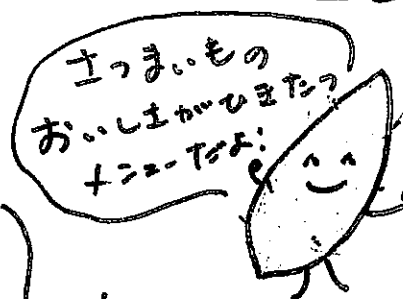 さつまいもの
おいしさがひきたつ
メニューだよ!